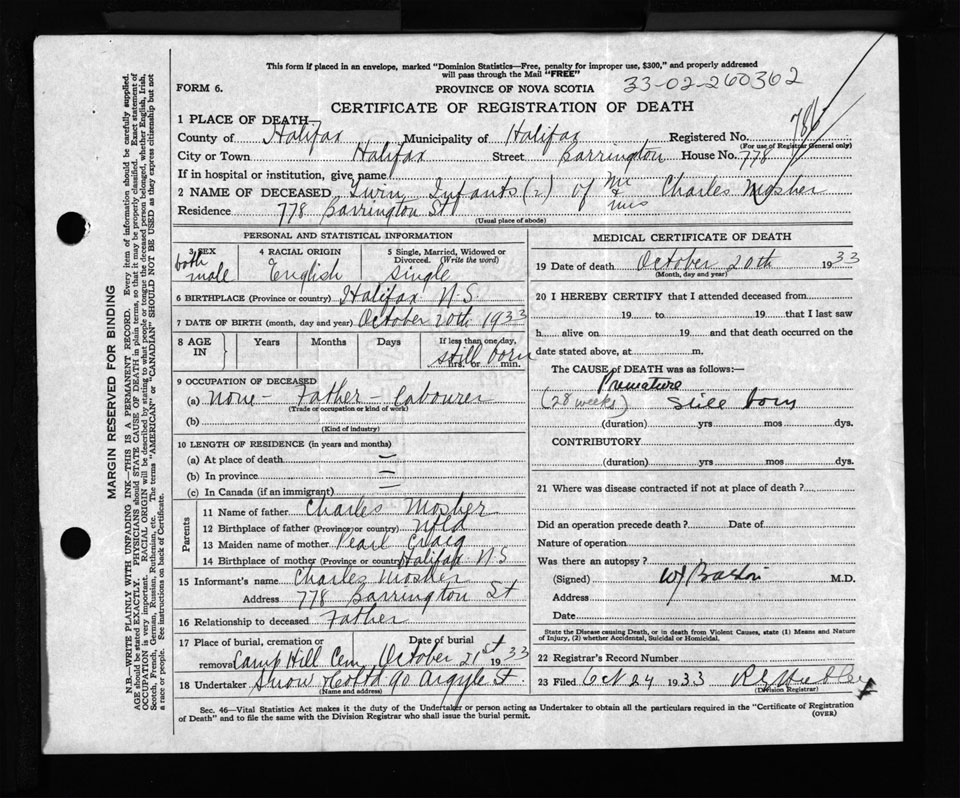 This form if placed in an envelope, marked "Dominion Statistics—Free, penalty for improper use, $300," and properly addressed
will pass through the Mail "FREE"
FORM 6.
PROVINCE OF NOVA SCOTIA
33-02-260362
CERTIFICATE OF REGISTRATION OF DEATH
1 PLACE OF DEATH
County of Halifax Municipality of Halifax Registered No. 786
(For use of Registrar General only)
City or Town Halifax Street Barrington House No. 778
If in hospital or institution, give name
2 NAME OF DECEASED Twin Infants (2) of Mr & Mrs Charles Mosher
Residence 778 Barrington St
(Usual place of abode)
PERSONAL AND STATISTICAL INFORMATION
3 SEX both male
4 RACIAL ORIGIN English
5 Single, Married, Widowed or Divorced. (Write the word) Single
6 BIRTHPLACE (Province or country) Halifax N.S.
7 DATE OF BIRTH (month, day and year) October 20th 1933
8 AGE IN Years Months Days If less than one day, hrs. or min. still born
9 OCCUPATION OF DECEASED
(a) None - Father - Labourer
(Trade or occupation or kind of work)
(b)
(Kind of industry)
10 LENGTH OF RESIDENCE (in years and months)
(a) At place of death
(b) In province
(c) In Canada (if an immigrant)
Parents
11 Name of father Charles Mosher
12 Birthplace of father (Province or country) Nfld
13 Maiden name of mother Pearl Craig
14 Birthplace of mother (Province or country) Halifax N.S
15 Informant's name Charles Mosher
Address 778 Barrington St
16 Relationship to deceased Father
17 Place of burial, cremation or removal Camp Hill Cem. Date of burial October 21st 1933
18 Undertaker Snow & Co Ltd 90 Argyle St.
(Name and address)
MEDICAL CERTIFICATE OF DEATH
19 Date of death October 20th 1933
(Month, day and year)
20 I HEREBY CERTIFY that I attended deceased from
19 to 19 that I last saw
h alive on 19 and that death occurred on the
date stated above, at m.
The CAUSE OF DEATH was as follows:—
Premature
(28 weeks) Still born
(duration) yrs mos dys.
CONTRIBUTORY
(duration) yrs mos dys.
21 Where was disease contracted if not at place of death?
Did an operation precede death? Date of
Nature of operation
Was there an autopsy?
(Signed) M.D.
Address
Date
State the Disease causing Death, or in death from Violent Causes, state (1) Means and Nature
of Injury, (2) whether Accidental, Suicidal or Homicidal.
22 Registrar's Record Number
23 Filed Oct 24 1933
(Division Registrar)
Sec. 46—Vital Statistics Act makes it the duty of the Undertaker or person acting as Undertaker to obtain all the particulars required in the "Certificate of Registration
of Death" and to file the same with the Division Registrar who shall issue the burial permit.
(OVER)
MARGIN RESERVED FOR BINDING
N.B.—WRITE PLAINLY WITH UNFADING INK—THIS IS A PERMANENT RECORD. Every item of information should be carefully supplied.
AGE should be stated EXACTLY. PHYSICIANS should STATE CAUSE OF DEATH in plain terms, so that it may be properly classified. Exact statement of
OCCUPATION is very important. RACIAL ORIGIN will be described by stating to what people or tongue the deceased person belonged, whether English, Irish,
Scotch, French, German, Russian, Ruthenian, etc. The terms "AMERICAN" or "CANADIAN" SHOULD NOT BE USED as they express citizenship but not
a race or people. See instructions on back of Certificate.